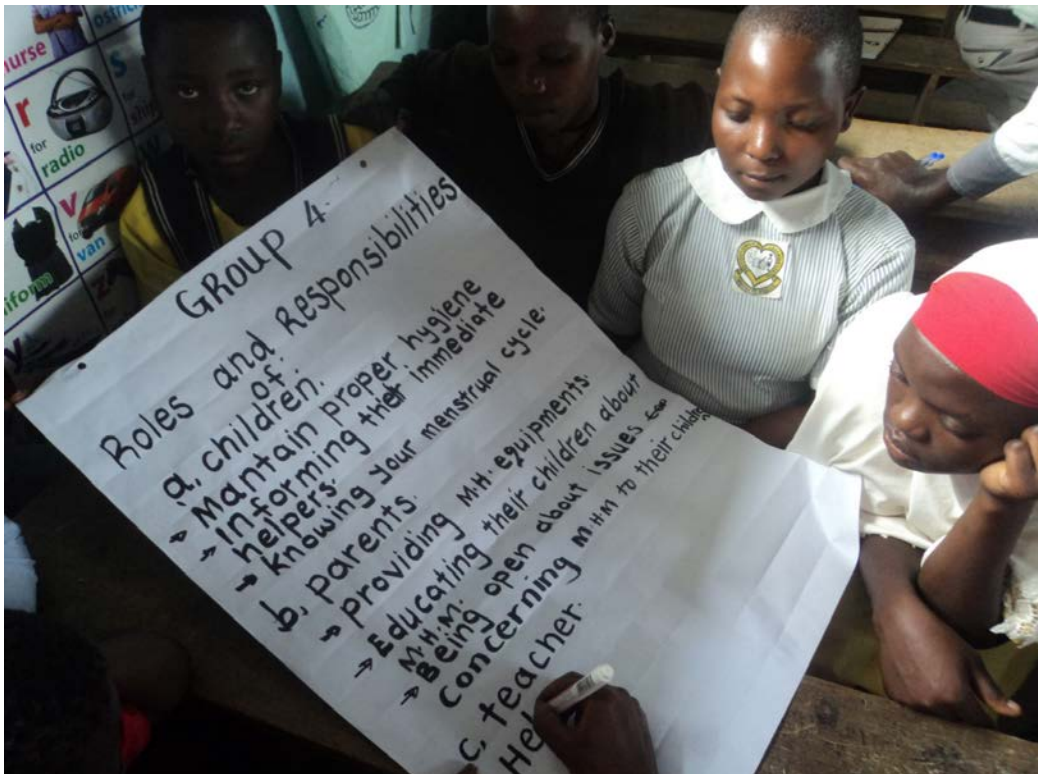 nurse
ostrich
r
for
radio
s
for
ship
v
for
van
GROUP 4.
Roles and Responsibilities
of.
a, children.
Mantain proper hygiene
Informing ther immediate
helpers.
knowing your menstrual cycle.
b, parents.
providing M.H. equipments.
Educating their children about
M.H.M.
Being open about issues
Concerning M.H.M to their children
c, teacher.
Hel